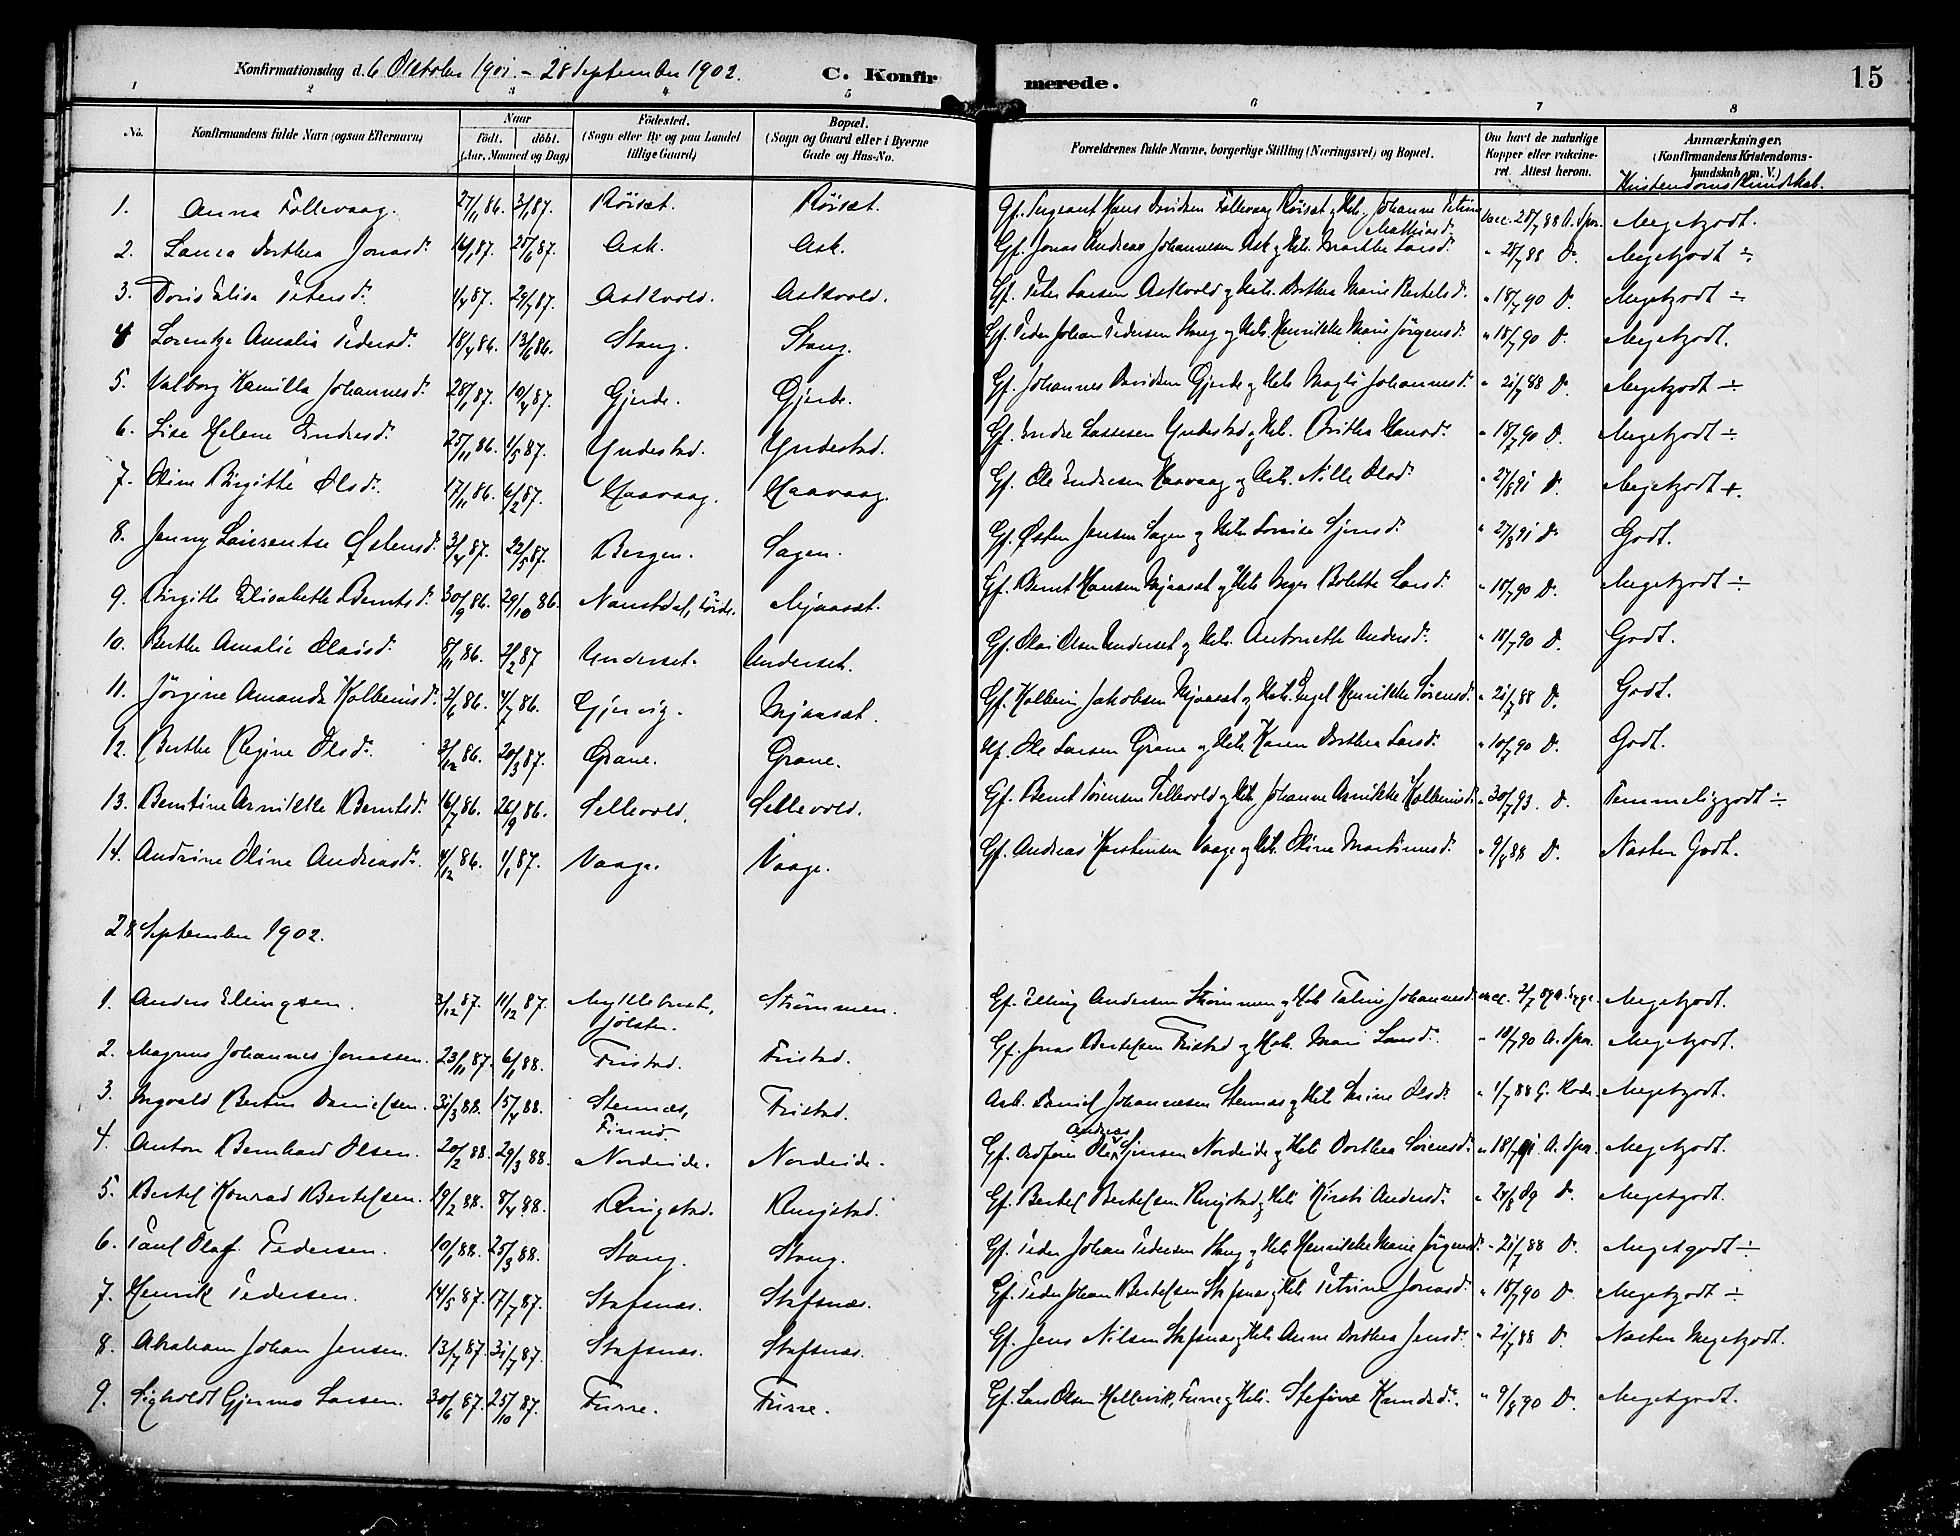 Konfirmationsdag d. 6 Oktober 1901. – 28 September 1902. C. Konfirmerede. 15
1 2 3 4 5 6 7 8
No. Konfirmandens fulde Navn (ogsaa Efternavn) Naar födt. döbt. (Aar, Maaned og Dag) Födested. (Sogn eller By og paa Landet tillige Gaard) Bopæl. (Sogn og Gaard eller i Byerne Gade og Hus-No. Forældrenes fulde Navne, borgerlige Stilling (Næringsvei) og Bopæl. Om havt de naturlige Kopper eller vakcineret. Attest herom. Anmærkninger. (Konfirmandens Kristendomskundskab m. V.)
Kristendoms Kundskab.
1. Anna Follevaag. 27/11 86. 3/1 87. Röiset. Röiset. Gf. Sergeant Hans Davidsen Follevaag Röiset og Hst. Johanne Petrine Mathiasd. vacc. 21/7 88 A. Spor. Megetgodt.
2. Laura Dorthea Jonasd. 16/1 87. 25/6 87. Ask. Ask. Gf. Jonas Andreas Johannesen Ask og Hst. Marthe Larsd. " 21/7 88 Do. Megetgodt ÷
3. Doris Elisa Petersd. 1/4 87. 29/7 87. Askvold. Askvold. Gf. Peter Larsen Askvold og Hst. Dorthea Marie Bertelsd. " 18/7 90 Do. Megetgodt ÷
4 Lorentze Amalia Pedersd. 18/4 86. 13/6 86. Stang. Stang. Gf. Peder Johan Pedersen Stang og Hst. Henrikke Marie Jörgensd. " 18/7 90 Do. Megetgodt.
5. Valborg Kamilla Johannesd. 28/1 87. 10/4 87. Gjerde. Gjerde. Gf. Johannes Davidsen Gjerde og Hst. Magli Johannesd. " 21/7 88 Do. Megetgodt ÷
6. Lise Helene Endresd. 25/11 86. 1/5 87. Yndestad. Yndestad. Gf. Endre Lassesen Yndestad og Hst. Brithe Hansd. " 18/7 90 Do. Megetgodt ÷
7. Oline Birgitte Olsd. 17/11 86. 6/2 87. Haavaag. Haavaag. Gf. Ole Endresen Haavaag og Hst. Nille Olsd. " 27/8 91 Do. Megetgodt +.
8. Jenny Laurentse Østensd. 3/4 87. 22/5 87. Bergen. Sagen. Gf. Østen Jensen Sagen og Hst. Lovise Sjursd. " 27/8 91 Do Godt.
9. Birgitte Elisabeth Berntsd. 30/9 86. 29/10 86. Naustdal, Förde. Mjaaset. Gf. Bernt Hansen Mjaaset og Hst. Inger Bolette Larsd. " 18/7 90 Do. Megetgodt ÷
10. Berthe Amalie Olaisd. 8/11 86. 2/2 87 Underset. Underset. Gf. Olai Olsen Underset og Hst. Antonette Andersd. " 18/7 90 Do. Godt.
11. Jörgine Amanda Kolbeinsd. 2/6 86. 4/7 86. Gjervig. Mjaaset. Gf. Kolbein Jakobsen Mjaaset og Hst. Engel Henrikke Sörensd. " 21/7 88 Do. Godt.
12. Berthe Regine Olsd. 3/12 86. 20/3 87. Grane. Grane. Gf. Ole Larsen Grane og Hst. Karen Dorthea Larsd. " 10/7 90 Do. Godt.
13. Berntine Arnikke Berntsd. 16/7 86. 26/9 86. Sellevold. Sellevold. Gf. Bernt Sörensen Sellevold og Hst. Johanne Arnikke Kolbeinsd. " 30/7 93. Do. Temmeliggodt ÷
14. Andrine Oline Andreasd. 4/12 86. 1/1 87. Vaage. Vaage. Gf. Andreas Karstensen Vaage og Hst. Oline Martinusd. " 9/8 88 Do. Næsten Godt.
28 September 1902.
1. Anders Ellingsen. 3/12 87. 11/12 87. Myklebust, Jölster. Strömmen. Gf. Elling Andersen Strömmen og Hst. Taline Johannesd. vacc. 2/7 89 Megetgodt.
2. Magnus Johannes Jonassen. 23/11 87. 6/1 88. Fristad. Fristad. Gf. Jonas Bertelsen Fristad og Hst. Mari Larsd. " 18/7 90 A. Spor. Megetgodt.
3. Ingvald Bertin Danielsen. 31/3 88. 15/4 88. Stennæs, Finnö. Fristad. Arb. Daniel Johannesen Stennæs og Hst. Serine Olsd. " 1/7 88 G. Megetgodt.
4. Anton Bernhard Olsen. 20/2 88. 29/3 88. Nordeide. Nordeide. Gf. Ole Andreas Sjursen Nordeide og Hst. Dorthea Sörensd. " 18/7 91 A. Spor. Megetgodt.
5. Bertel Konrad Bertelsen. 19/2 88. 8/4 88. Ringstad. Ringstad. Gf. Bertel Bertelsen Ringstad og Hst. Kirsti Andersd. " 24/8 89 Do. Megetgodt.
6. Paul Olaf Pedersen. 10/1 88. 25/3 88. Stang. Stang. Gf. Peder Johan Pedersen Stang og Hst. Henrikke Marie Jörgensd. " 21/7 88 Do. Megetgodt ÷
7. Henrik Pedersen. 14/5 87. 17/7 87. Stafsnæs. Stafsnæs. Gf. Peder Johan Bertelsen Stafsnæs og Hst. Petrine Jonasd. " 18/7 90 Do. Megetgodt ÷
8. Abraham Johan Jensen. 13/7 87 31/7 87. Stafsnæs. Stafsnæs. Gf. Jens Nilsen Stafsnæs og Hst. Anne Dorthea Jensd. " 21/7 88 Do. Næsten Megetgodt.
9. Sigholdt Gjermo Larsen. 30/6 87. 25/10 87. Furre. Furre. Gf. Lars Olsen Hellevik, Furre og Hst. Stefine Knudsd. " 9/8 90 Do. Megetgodt.